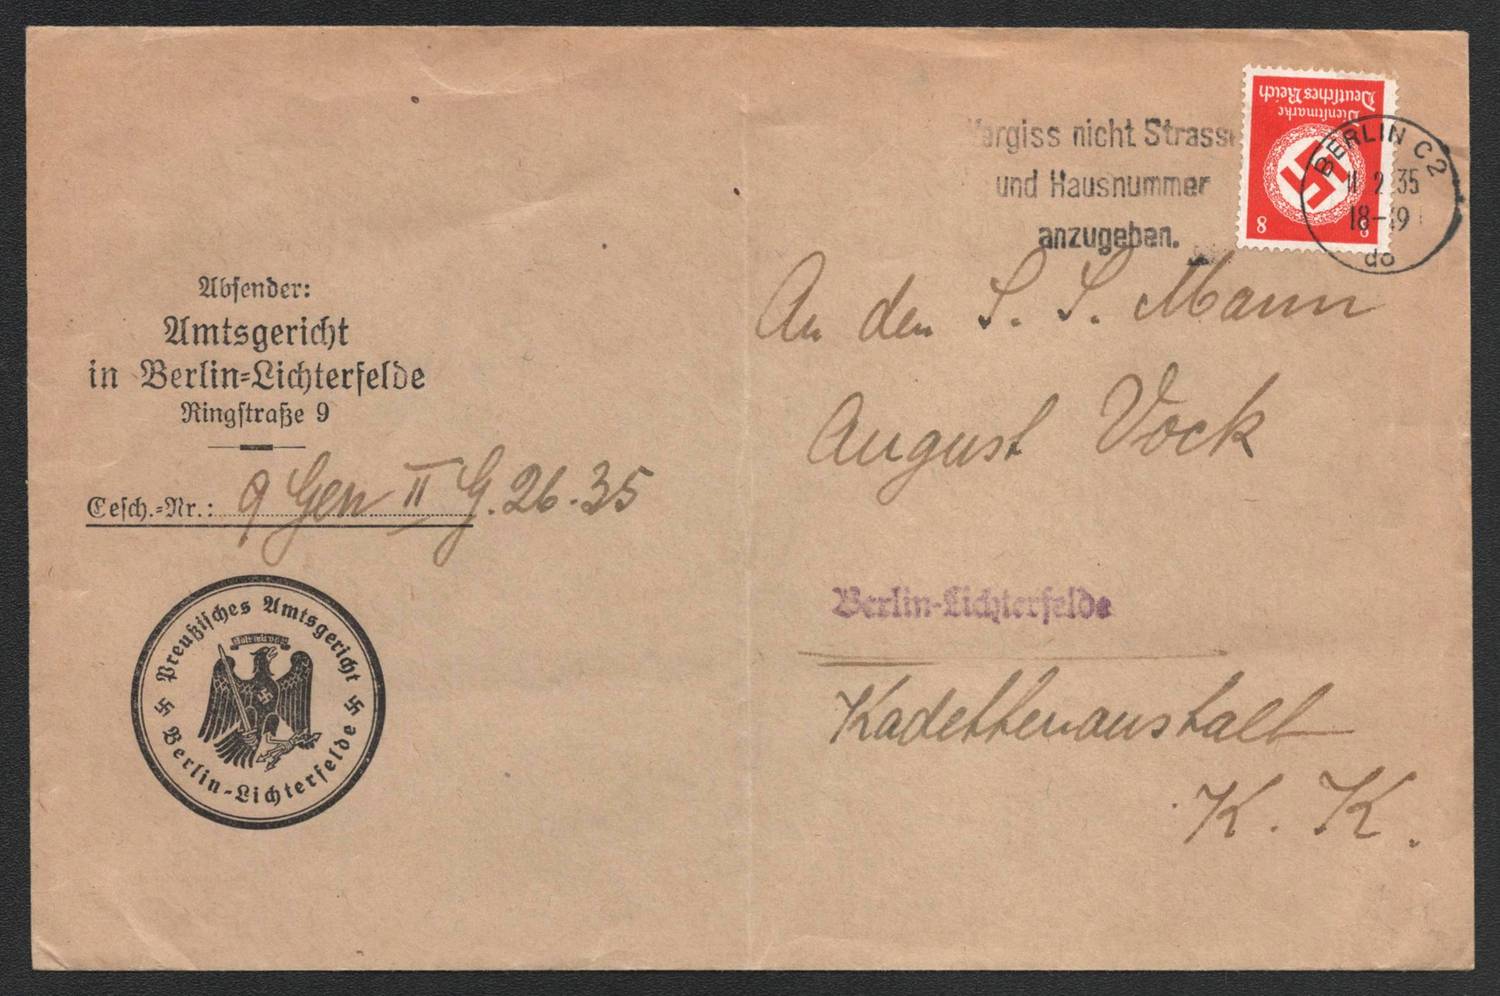 Absender:
Amtsgericht
in Berlin-Lichterfelde
Ringstraße 9
Gesch.-Nr.: 9 Gen II G. 26.35
Preußisches Amtsgericht
Berlin-Lichterfelde
Vergiss nicht Strasse
und Hausnummer
anzugeben.
Deutsches Reich
Dienstmarke
8 8
BERLIN C2
11 2 35
18-19
do
An den S. S. Mann
August Vock
Berlin-Lichterfelde
Kadettenanstalt
K. K.